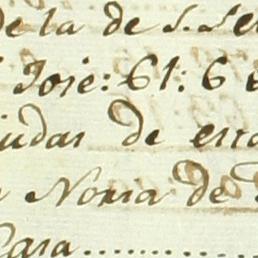 de la de S. Se
Jose: 61: 6
iudas de esta
Noria de
Casa..........